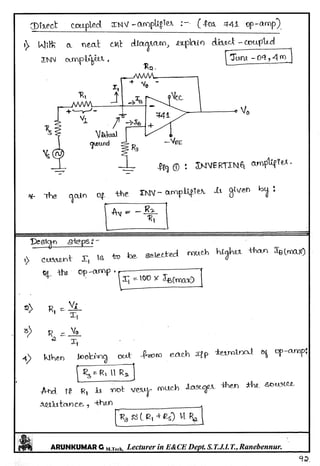 Direct coupled INV-amplifier :- (for 741 op-amp)
1) With a neat ckt diagram, explain direct-coupled
INV amplifier.
June-09, 4m
R2
I1
V0
IB
VCC
R1
V0
741
Vi
IB
Virtual
ground
RS
R3
-VEE
VS
fig ①: INVERTING amplifier.
* The gain of the INV-amplifier is given by:
AV = - R2/R1
Design steps:-
1) current I1 is to be selected much higher than IB(max)
of the op-amp.
I1 = 100 x IB(max)
2) R1 = Vi/I1
3) R2 = V0/I1
4) When looking out from each i/p terminal of op-amp;
R3 = R1 || R2
And if R1 is not very much larger then the source
resistance, then
R3 ≈ (R1 + RS) || R2
ARUNKUMAR G M.Tech, Lecturer in E&CE Dept. S.T.J.I.T., Ranebennur.